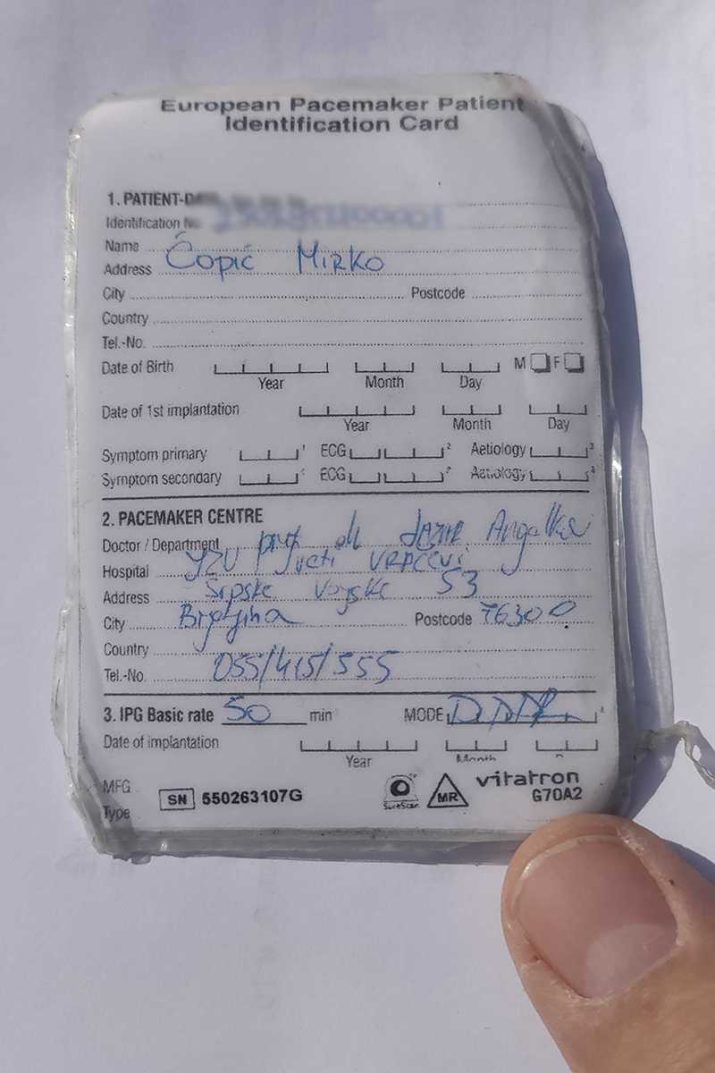 European Pacemaker Patient
Identification Card
1. PATIENT-
Identification
Name
Address Čopić Mirko
City Postcode
Country
Tel.-No.
Date of Birth M F
Year Month Day
Date of 1st implantation
Year Month Day
Symptom primary 1 ECG 2 Aetiology 3
Symptom secondary ECG Aetiology
2. PACEMAKER CENTRE
Doctor / Department prof dr
Hospital JZU
Address Srpske Vojske 53
City Postcode 76300
Country
Tel.-No. 055/415/555
3. IPG Basic rate 50 min MODE
Date of implantation
Year Month
MFG
Type
SN 550263107G
SureScan
MR
vitatron
G70A2